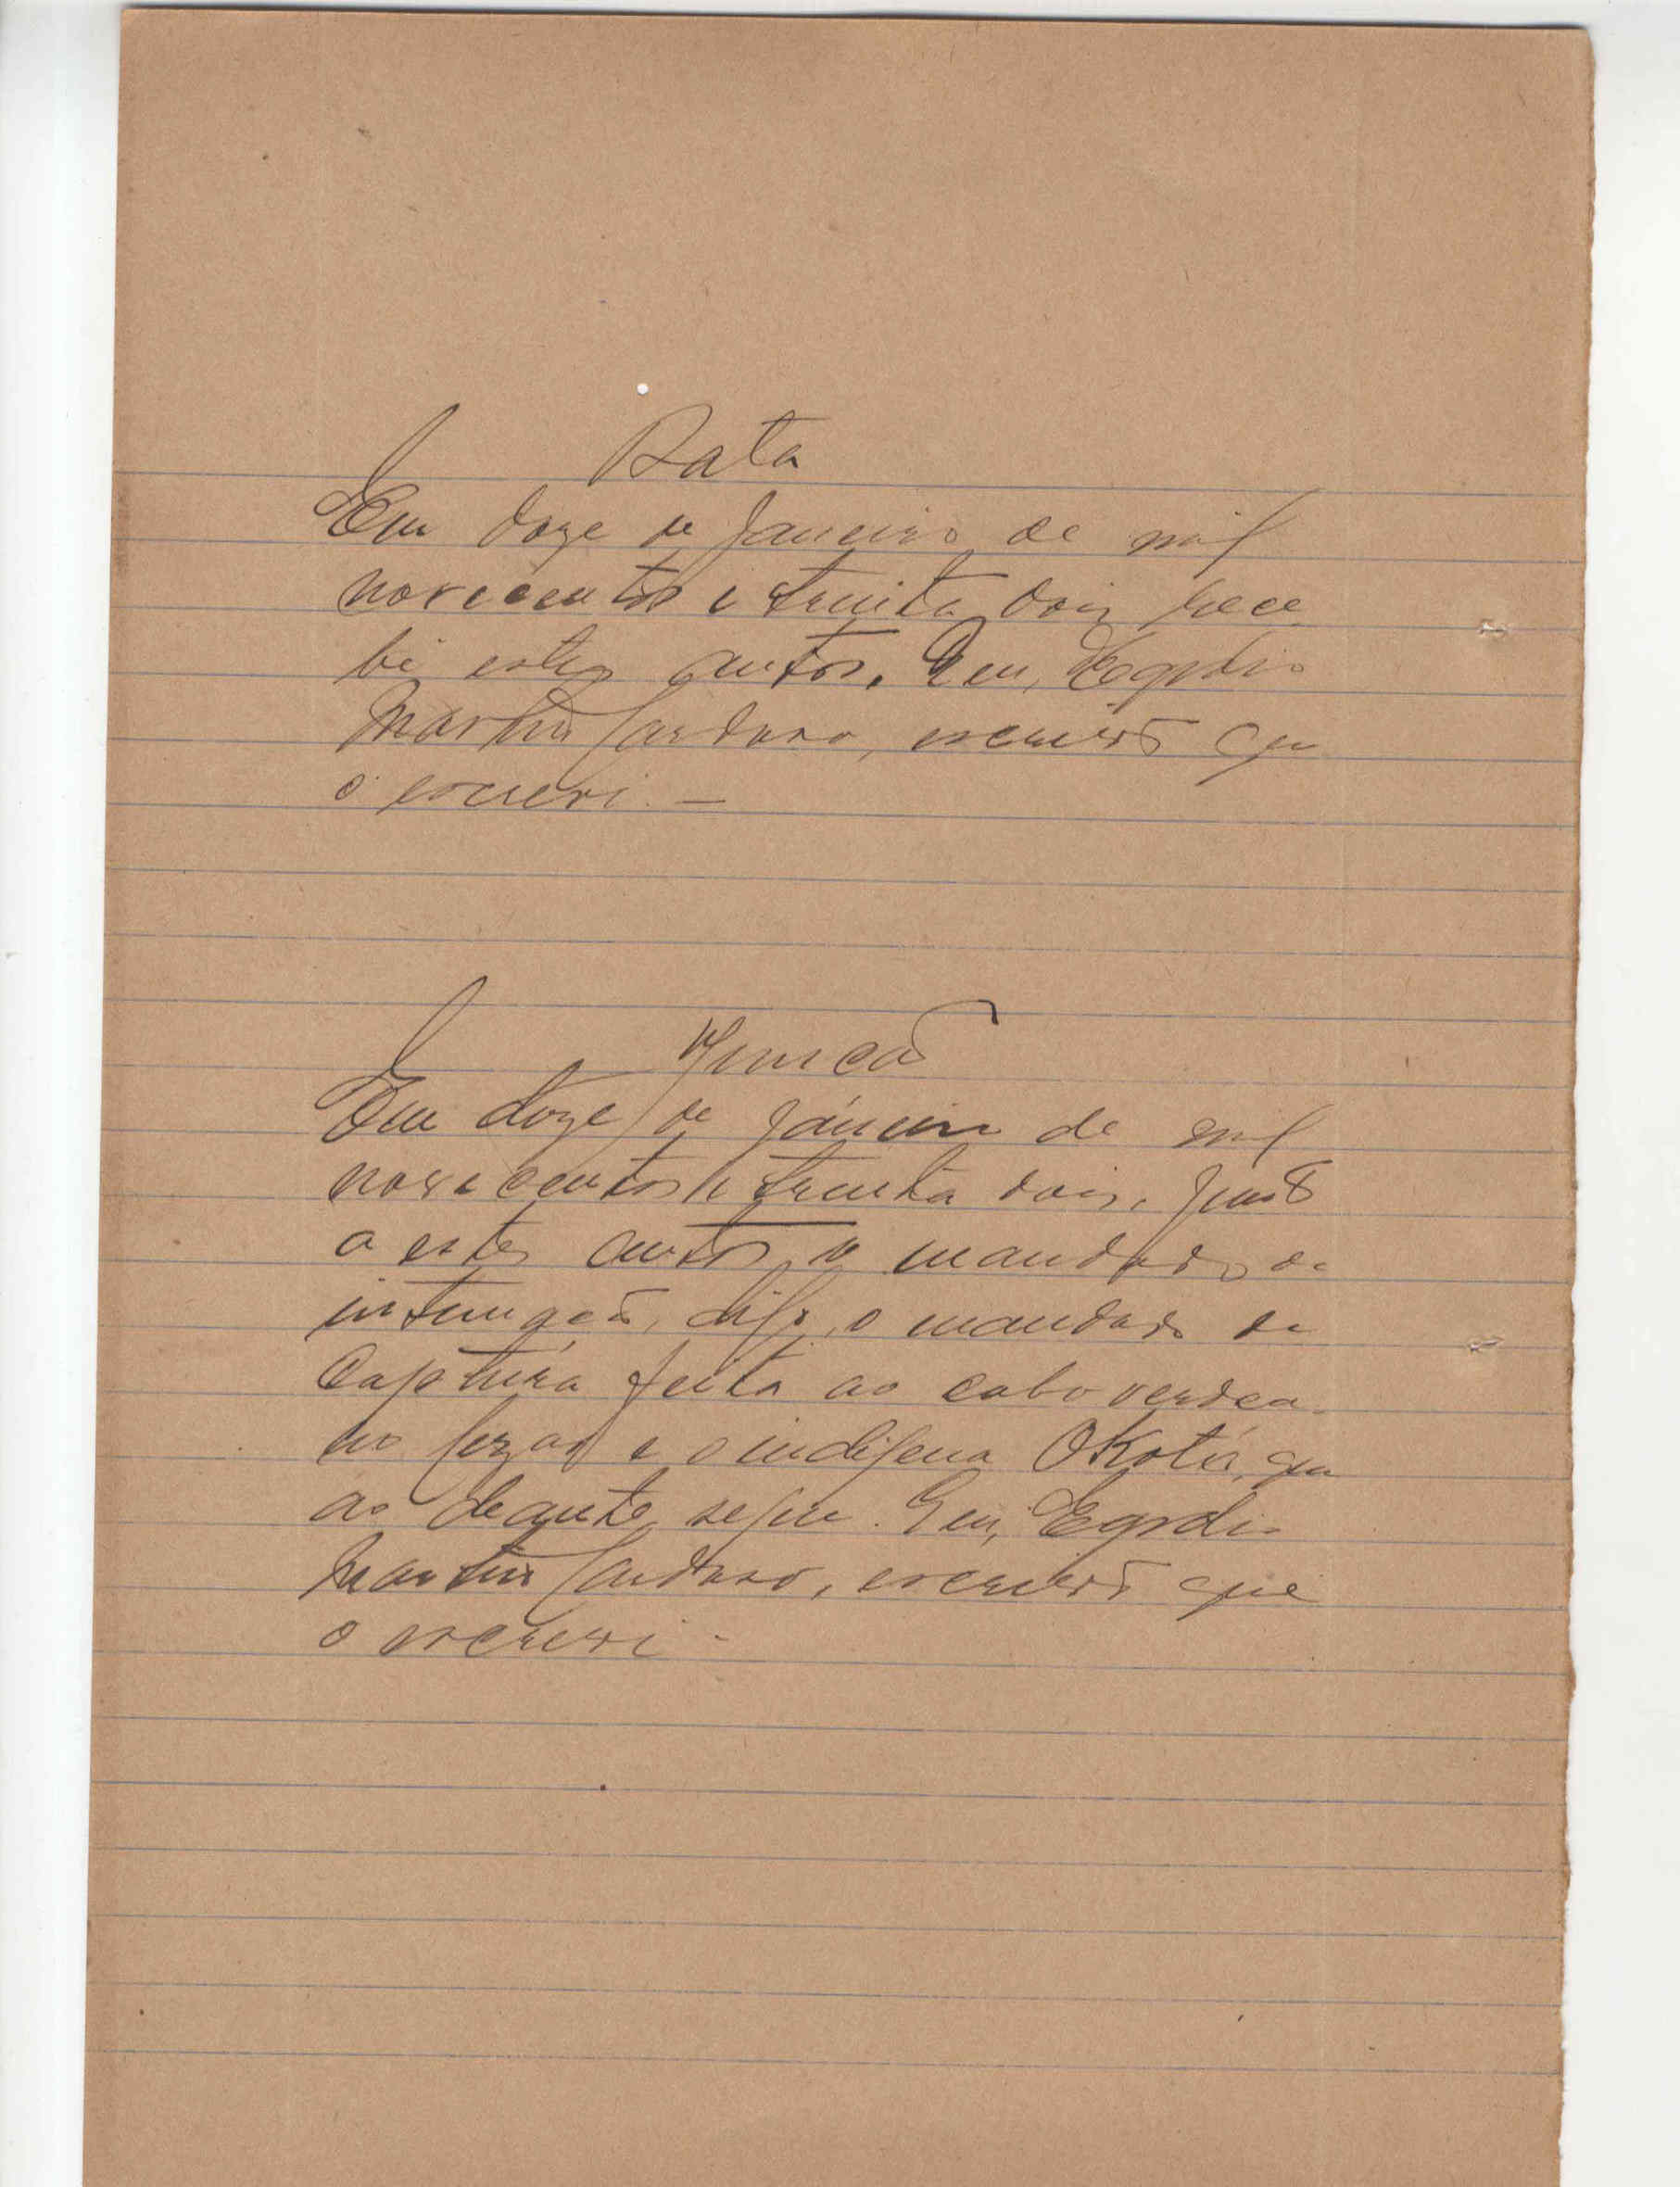 Data
Em doze de Janeiro de mil
novecentos e trinta dois rece
bi estes autos. Eu, Egydio
Martins Cardoso, escrivão que
o escrevi. —
Juncão
Em doze de Janeiro de mil
novecentos e trinta dois, junto
a estes autos o mandado de
intimação, digo, o mandado de
Captura feita ao caboverdea-
no e o indigena Okotó, que
ao deante segue. Eu, Egydio
Martins Cardoso, escrivão que
o escrevi -